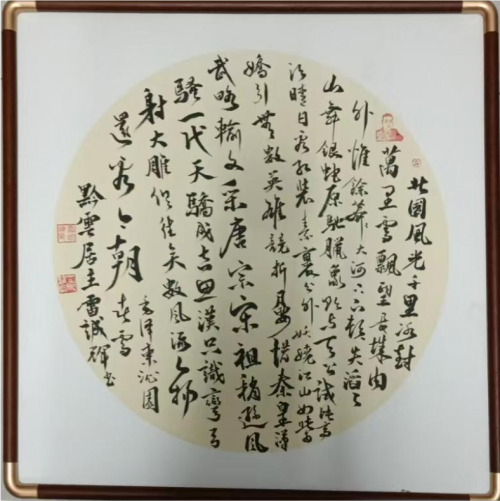 北國風光千里冰封
萬里雪飄望長城内
外惟餘莽大河上下頓失滔〻
山舞銀蛇原馳蠟象欲與天公試比高
須晴日看紅裝素裹分外妖嬈江山如此多
嬌引無數英雄競折腰惜秦皇漢
武略輸文采唐宗宋祖稍遜風
騷一代天驕成吉思漢只識彎弓
射大雕俱往矣數風流人物
還看今朝
毛澤東沁園
春雪
黔雲居主雷誠書